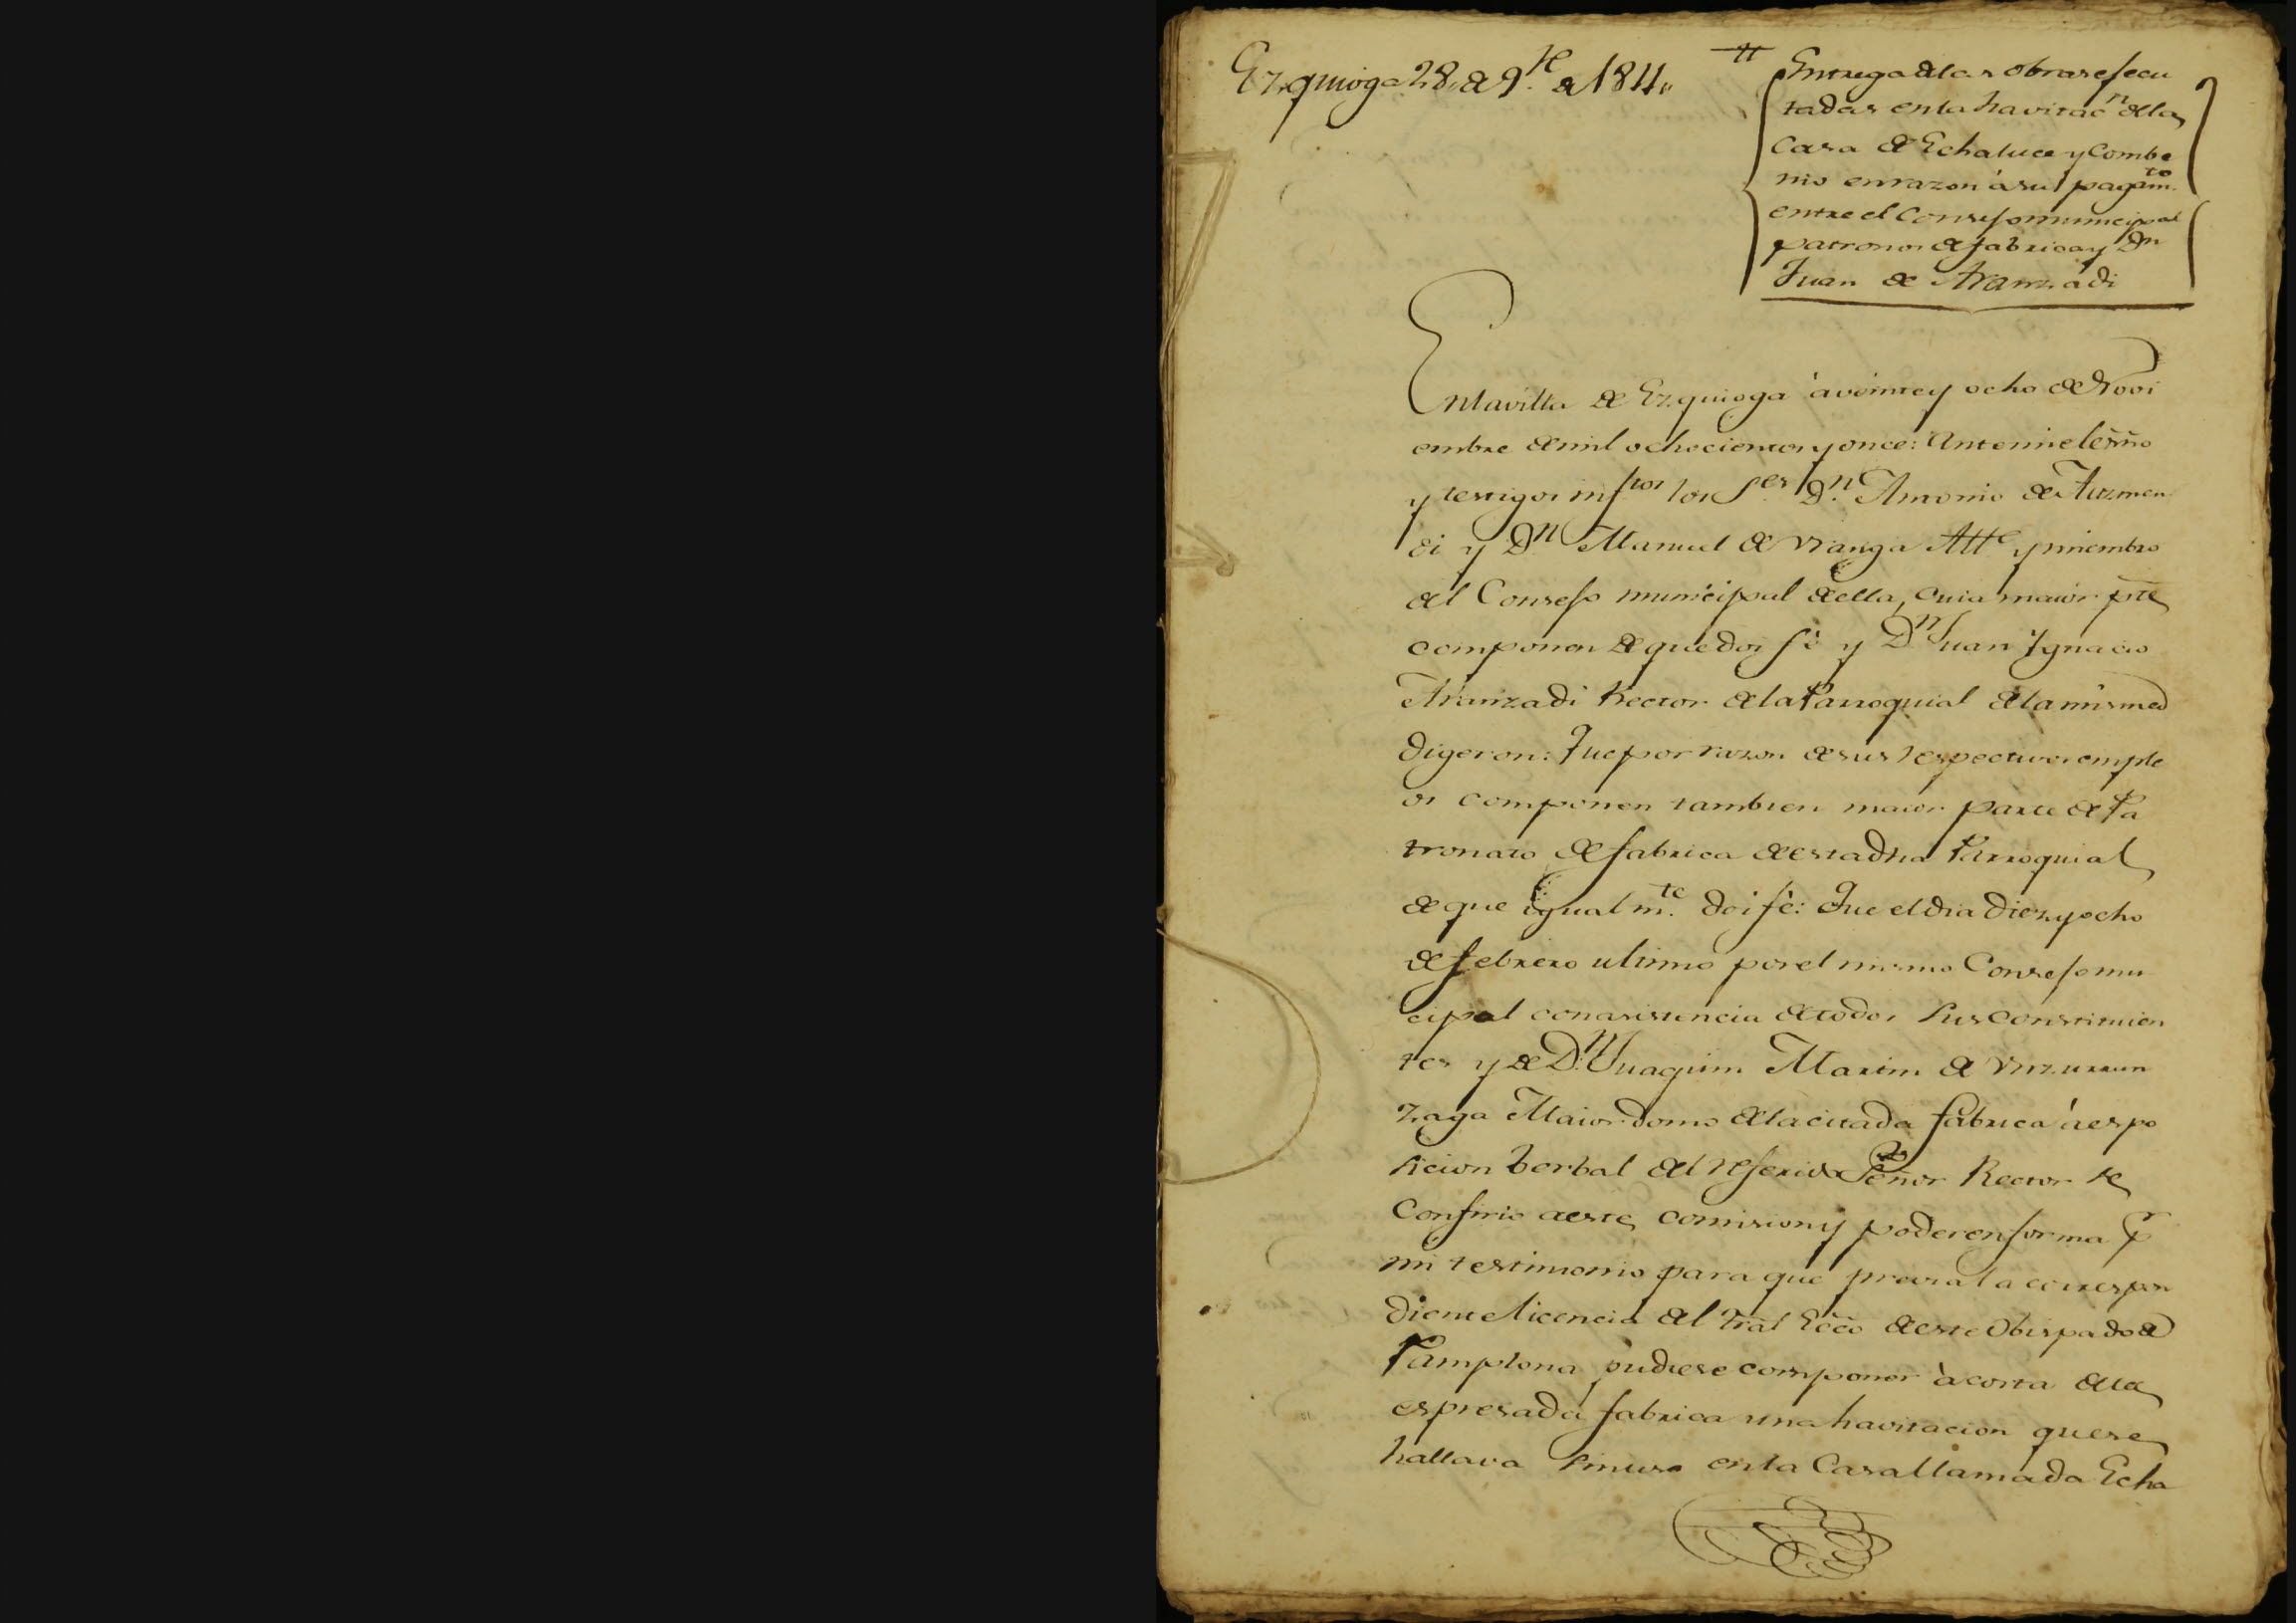 Ezquioga 28,, de 9.re de 1811,,
Entrega de las obras ejecu
tadas en la havitac.n de la
Casa de Echaluce y Combe
nio en razon à su pagam.to
entre el Consejo municipal
patronos de fabrica y D.n
Juan de Aranzadi
En la villa de Ezquioga à veinte y ocho de Novi
embre de mil ochocientos y once: Ante mi el esñno
y testigos inf.tos los S.es D.n Antonio de Auzmen
di y D.n Manuel de Vranga Alle y miembro
del Consejo municipal de ella, cuia maior pte
componen de que doi fè y D.n Juan Ygnacio
Aranzadi Rector de la Parroquial de la misma
digeron: Que por razon de sus respectivos emple
os componen tambien maior parte de Pa
tronato de fabrica de esta dha Parroquial
de que igualm.te doi fè: Que el dia diez y ocho
de febrero ultimo por el mismo Consejo mu
cipal con asistencia de todos sus constituien
tes y de D.n Juaquin Martin de
zaga Maiordomo de la citada fabrica à espo
sicion berbal del referido Señor Rector se
Confirio a este comision y poder en forma Pr
mi testimonio para que previa la correspon
diente licencia del Tral Ecco de este Obispado de
Pamplona pudiese componer à costa de la
espresada fabrica una havitacion que se
hallava sin uso en la Casa llamada Echa